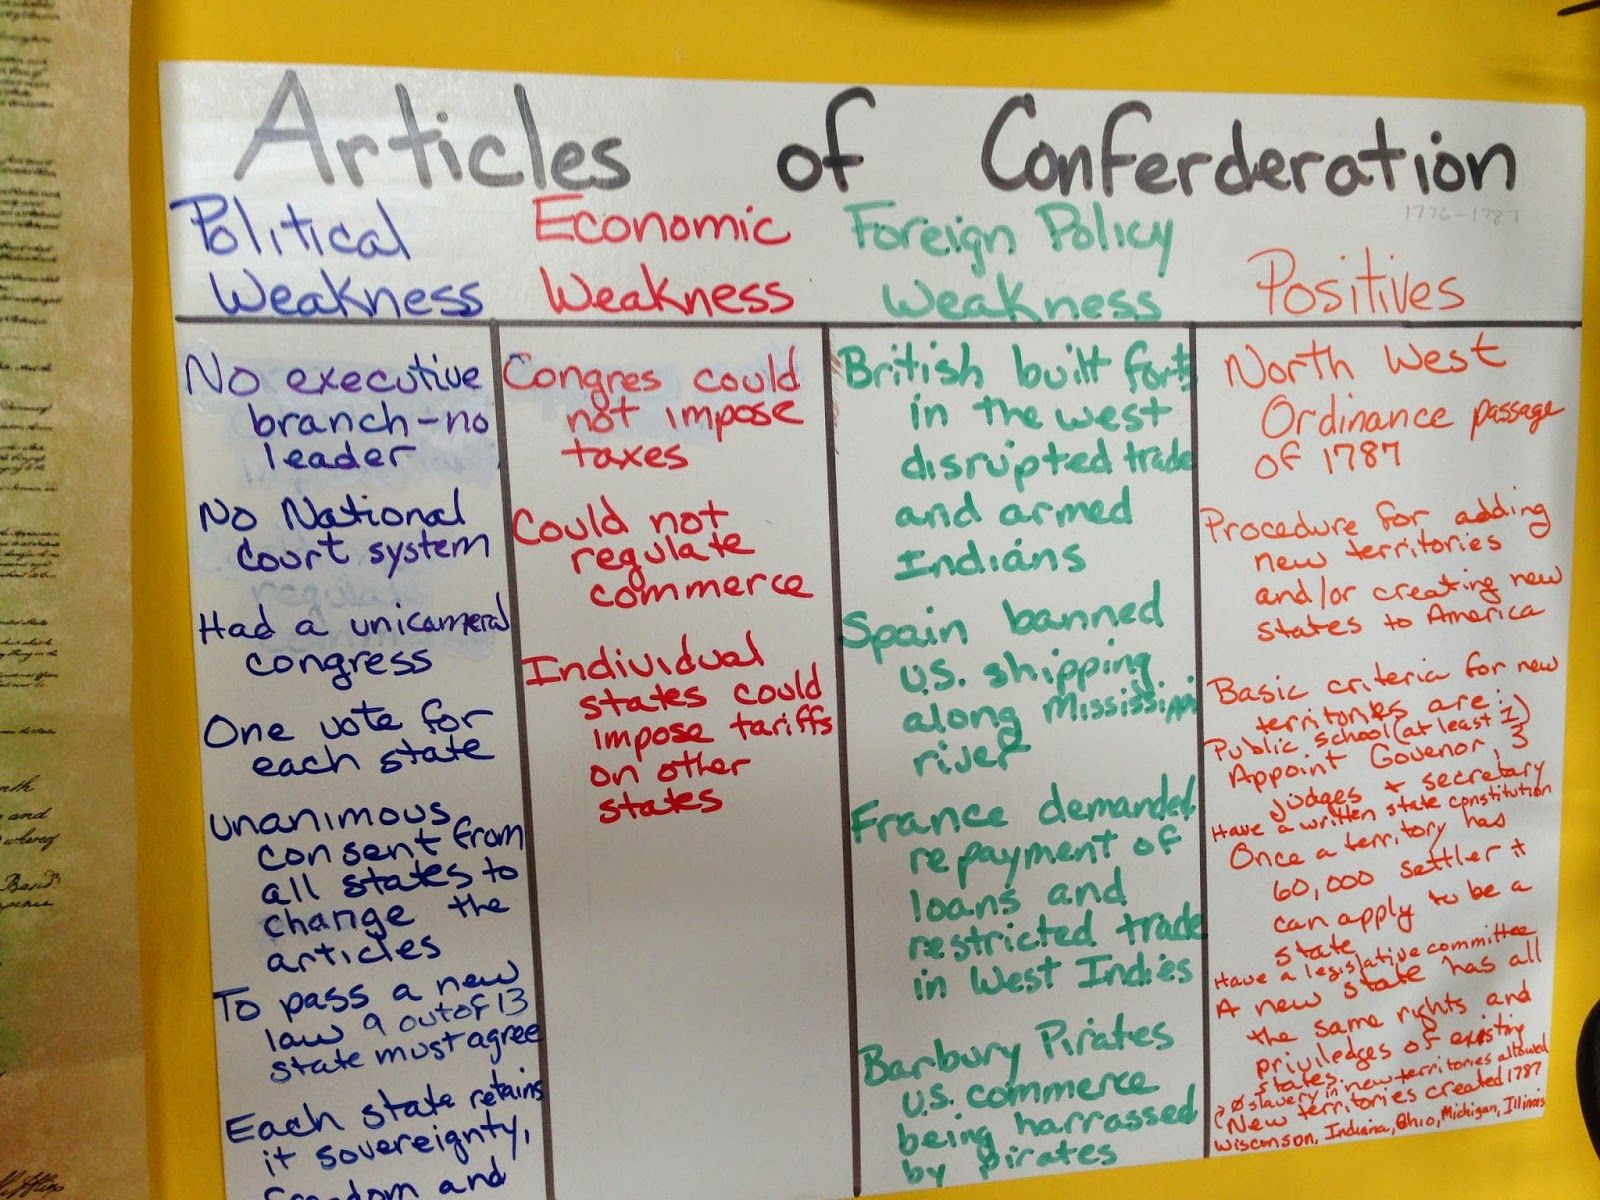 Articles of Conferderation
1776-1787
Political
Weakness
No executive
branch-no
leader
No National
court system
Had a unicameral
congress
One vote for
each state
unanimous
consent from
all states to
change the
articles
To pass a new
law 9 out of 13
state must agree
Each state retains
it sovereignty,
freedom and
Economic
Weakness
Congres could
not impose
taxes
Could not
regulate
commerce
Individual
states could
impose tariffs
on other
states
Foreign Policy
Weakness
British built forts
in the west
disrupted trade
and armed
Indians
Spain banned
U.S. shipping
along Mississippi
river
France demanded
repayment of
loans and
restricted trade
in West Indies
Barbury Pirates
U.S. commerce
being harrassed
by pirates
Positives
North West
Ordinance passage
of 1787
Procedure for adding
new territories
and/or creating new
states to America
Basic criteria for new
territories are:
Public school (at least 1)
Appoint Govenor, 3
judges + secretary
Have a written state constitution
Once a territory has
60,000 settler it
can apply to be a
state
Have a legislative committee
A new state has all
the same rights and
priviledges of existing
states.
Ø slavery in new territories allowed
New territories created 1787
Wisconson, Indiana, Ohio, Michigan, Illinois
and
whereof